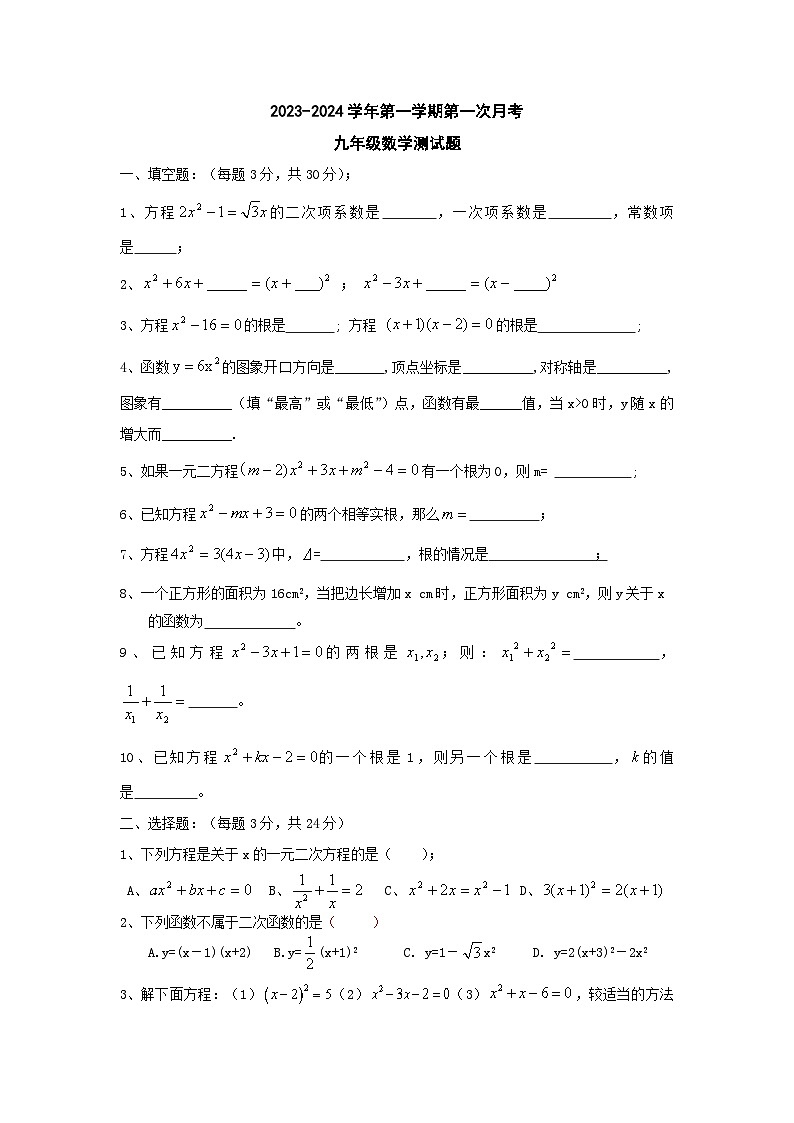 2023-2024学年第一学期第一次月考
九年级数学测试题
一、填空题：（每题3分，共30分）；
1、方程 2x² − 1 = √3x 的二次项系数是______，一次项系数是______，常数项
是______；
2、x² + 6x + ______ = (x + ___)² ； x² − 3x + ______ = (x − ____)²
3、方程 x² − 16 = 0 的根是______; 方程 (x + 1)(x − 2) = 0 的根是____________;
4、函数 y = 6x² 的图象开口方向是______,顶点坐标是________,对称轴是________,
图象有________（填“最高”或“最低”）点，函数有最______值，当x>0时，y随x的
增大而________.
5、如果一元二方程 (m − 2)x² + 3x + m² − 4 = 0 有一个根为0，则m= __________;
6、已知方程 x² − mx + 3 = 0 的两个相等实根，那么 m = ________;
7、方程 4x² = 3(4x − 3) 中，Δ=__________，根的情况是____________;
8、一个正方形的面积为16cm²，当把边长增加x cm时，正方形面积为y cm²，则y关于x
的函数为____________。
9、已知方程 x² − 3x + 1 = 0 的两根是 x₁, x₂；则：x₁² + x₂² = __________，
1/x₁ + 1/x₂ = ______。
10、已知方程 x² + kx − 2 = 0 的一个根是1，则另一个根是________，k 的值
是________。
二、选择题：（每题3分，共24分）
1、下列方程是关于x的一元二次方程的是（ ）;
A、ax² + bx + c = 0 B、1/x² + 1/x = 2 C、x² + 2x = x² − 1 D、3(x + 1)² = 2(x + 1)
2、下列函数不属于二次函数的是（ ）
A.y=(x－1)(x+2) B.y=1/2(x+1)² C. y=1－√3x² D. y=2(x+3)²－2x²
3、解下面方程：（1）(x − 2)² = 5（2）x² − 3x − 2 = 0（3）x² + x − 6 = 0，较适当的方法